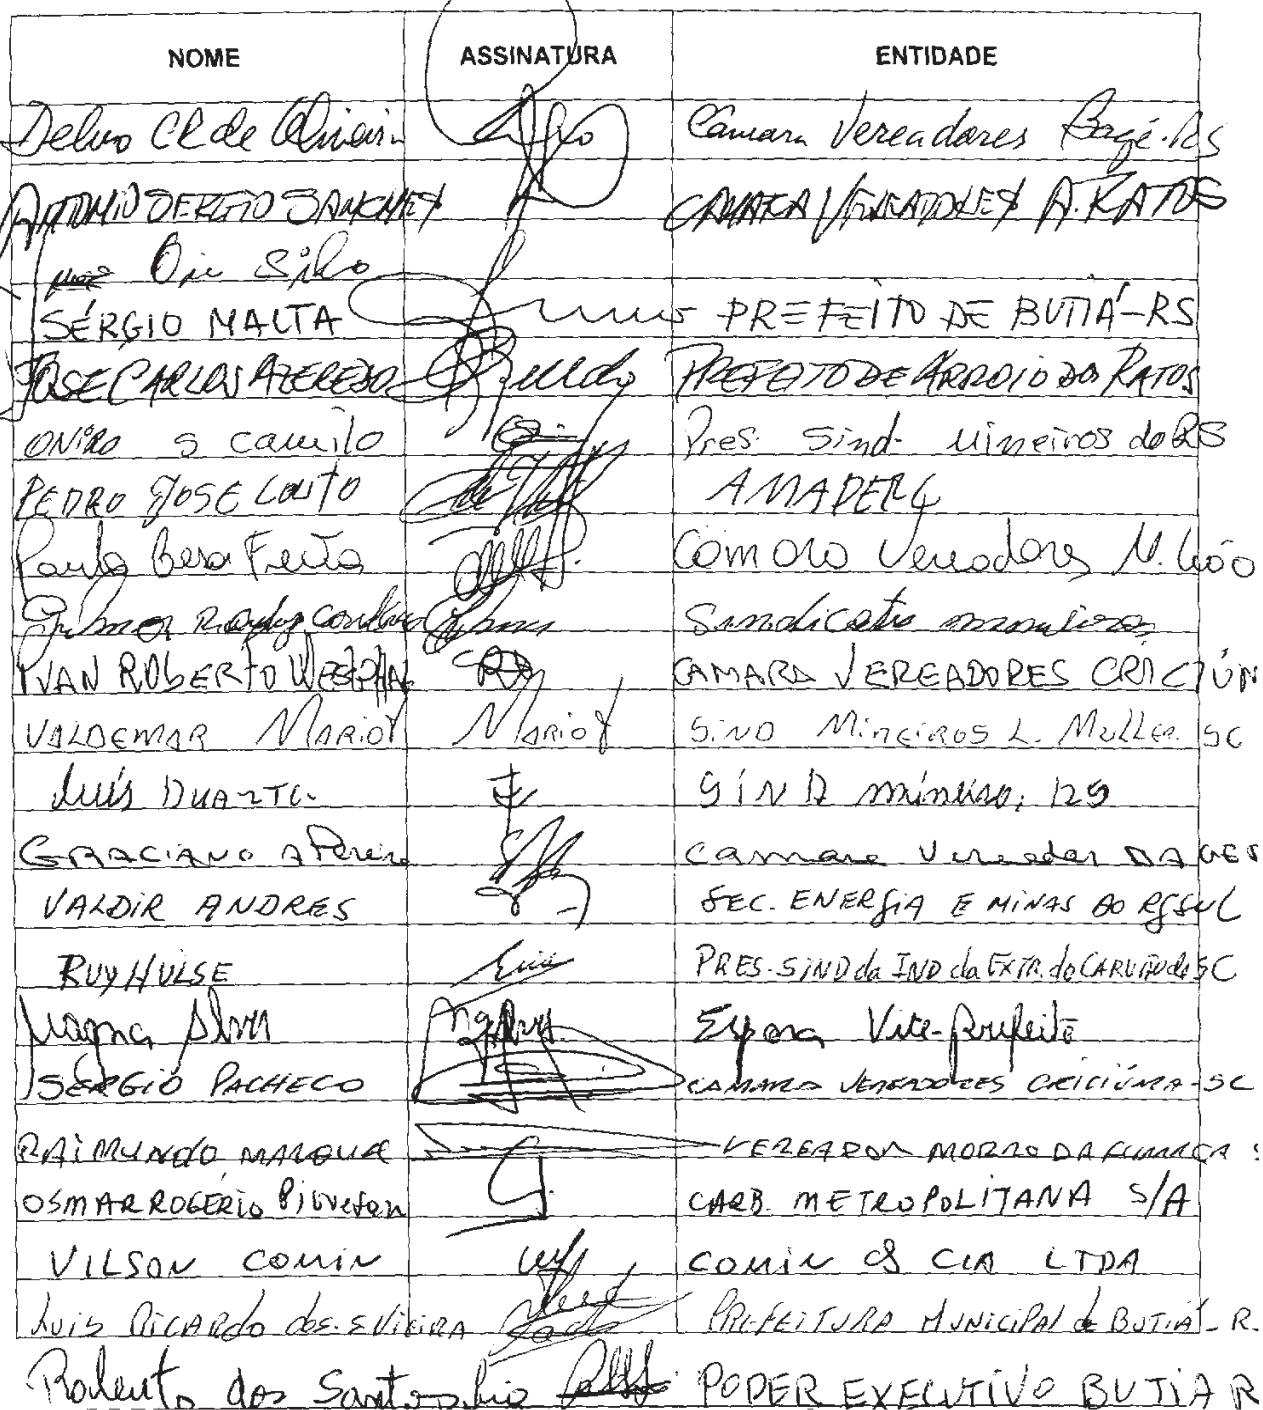 NOME ASSINATURA ENTIDADE
Delvo CR de Oliveira Câmara Vereadores Bagé-RS
ANTONIO SERGIO SANCHES CAMARA VEREADORES A. RATOS
Silva
SÉRGIO MALTA PREFEITO DE BUTIÁ-RS
JOSE CARLOS AZEREDO PREFEITO DE ARROIO DOS RATOS
ONIRO S Camilo Pres. Sind. Mineiros do RS
PEDRO JOSE COUTO
Paulo Câmara Vereadores M. Leão
Sindicato mineiros
IVAN ROBERTO WESTPHAL CAMARA VEREADORES CRICIÚM
VALDEMAR MARIOT MARIOT SIND MINEIROS L. MULLER SC
Luís DUARTE SIND mineiro, RS
GRACIANO A Pereira Camara Vereador
VALDIR ANDRES SEC. ENERGIA E MINAS DO RGSUL
RUY HULSE PRES. SIND da IND da EXTR. do CARVÃO de SC
Magna Alves Esposa Vice-prefeito
SÉRGIO PACHECO CAMARA VEREADORES CRICIÚMA-SC
RAIMUNDO VEREADOR MORRO DA FUMAÇA S
OSMAR ROGÉRIO CARB. METROPOLITANA S/A
VILSON COMIN COMIN & CIA LTDA
Luis RICARDO dos S VIEIRA PREFEITURA MUNICIPAL de BUTIÁ - R.
Roberto dos Santos PODER EXECUTIVO BUTIA R